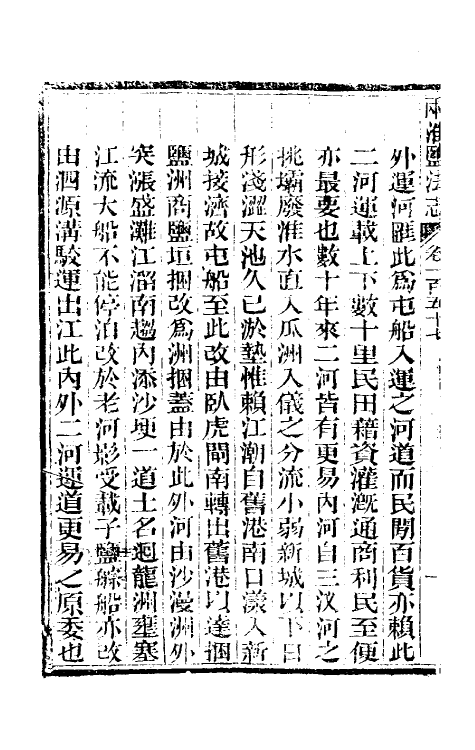 兩淮鹽法志 卷一百五十七
外運河匯此爲屯船入運之河道而民間百貨亦賴此
二河運載上下數十里民田藉資灌溉通商利民至便
亦最要也數十年來二河皆有更易內河自三汊河之
挑壩廢淮水直入瓜洲入儀之分流小弱新城以下日
形淺澀天池久已淤墊惟賴江潮自舊港南口漾入新
城接濟故屯船至此改由臥虎閘南轉出舊港以達捆
鹽洲商鹽垣捆改爲洲捆蓋由於此外河由沙漫洲外
突漲盛灘江溜南趨內添沙埂一道土名廻龍洲壅塞
江流大船不能停泊改於老河影受載子鹽䑸船亦改
由泗源溝駁運出江此內外二河運道更易之原委也